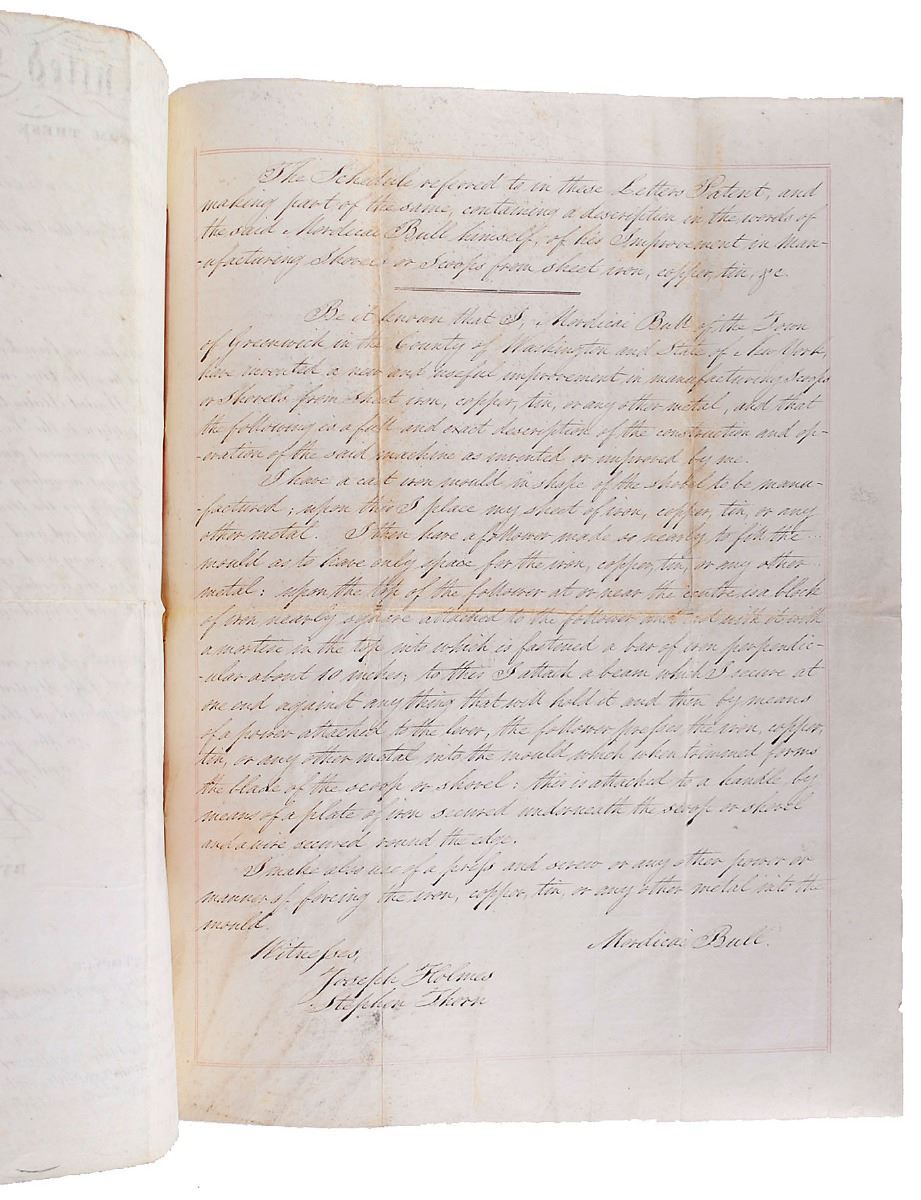 The Schedule referred to in these Letters Patent, and
making part of the same, containing a description in the words of
the said Mordicai Bull himself, of his Improvement in Man-
-ufacturing Shovels or Scoops from sheet iron, copper, tin, &c.
Be it known that I, Mordicai Bull of the Town
of Greenwich in the County of Washington and State of New York,
have invented a new and useful improvement in manufacturing scoops
or Shovels from sheet iron, copper, tin, or any other metal, and that
the following is a full and exact description of the construction and op-
-eration of the said machine as invented or improved by me.
I have a cast iron mould in shape of the shovel to be manu-
-factured; upon this I place my sheet of iron, copper, tin, or any
other metal. I then have a follower made so nearly to fill the
mould as to leave only space for the iron, copper, tin, or any other
metal: upon the top of the follower at or near the centre is a block
of iron nearly square attached to the follower and with
a mortise in the top into which is fastened a bar of iron perpendic-
-ular about 10 inches; to this I attach a beam which I secure at
one end against any thing that will hold it and then by means
of a power attached to the lever, the follower presses the iron, copper,
tin, or any other metal into the mould which when trimmed forms
the blade of the scoop or shovel: this is attached to a handle by
means of a plate of iron secured underneath the scoop or shovel
and a wire secured round the edge.
I make also use of a press and screw or any other power or
manner of forcing the iron, copper, tin, or any other metal into the
mould.
Mordicai Bull.
Witnesses,
Joseph Holmes
Stephen Thorn